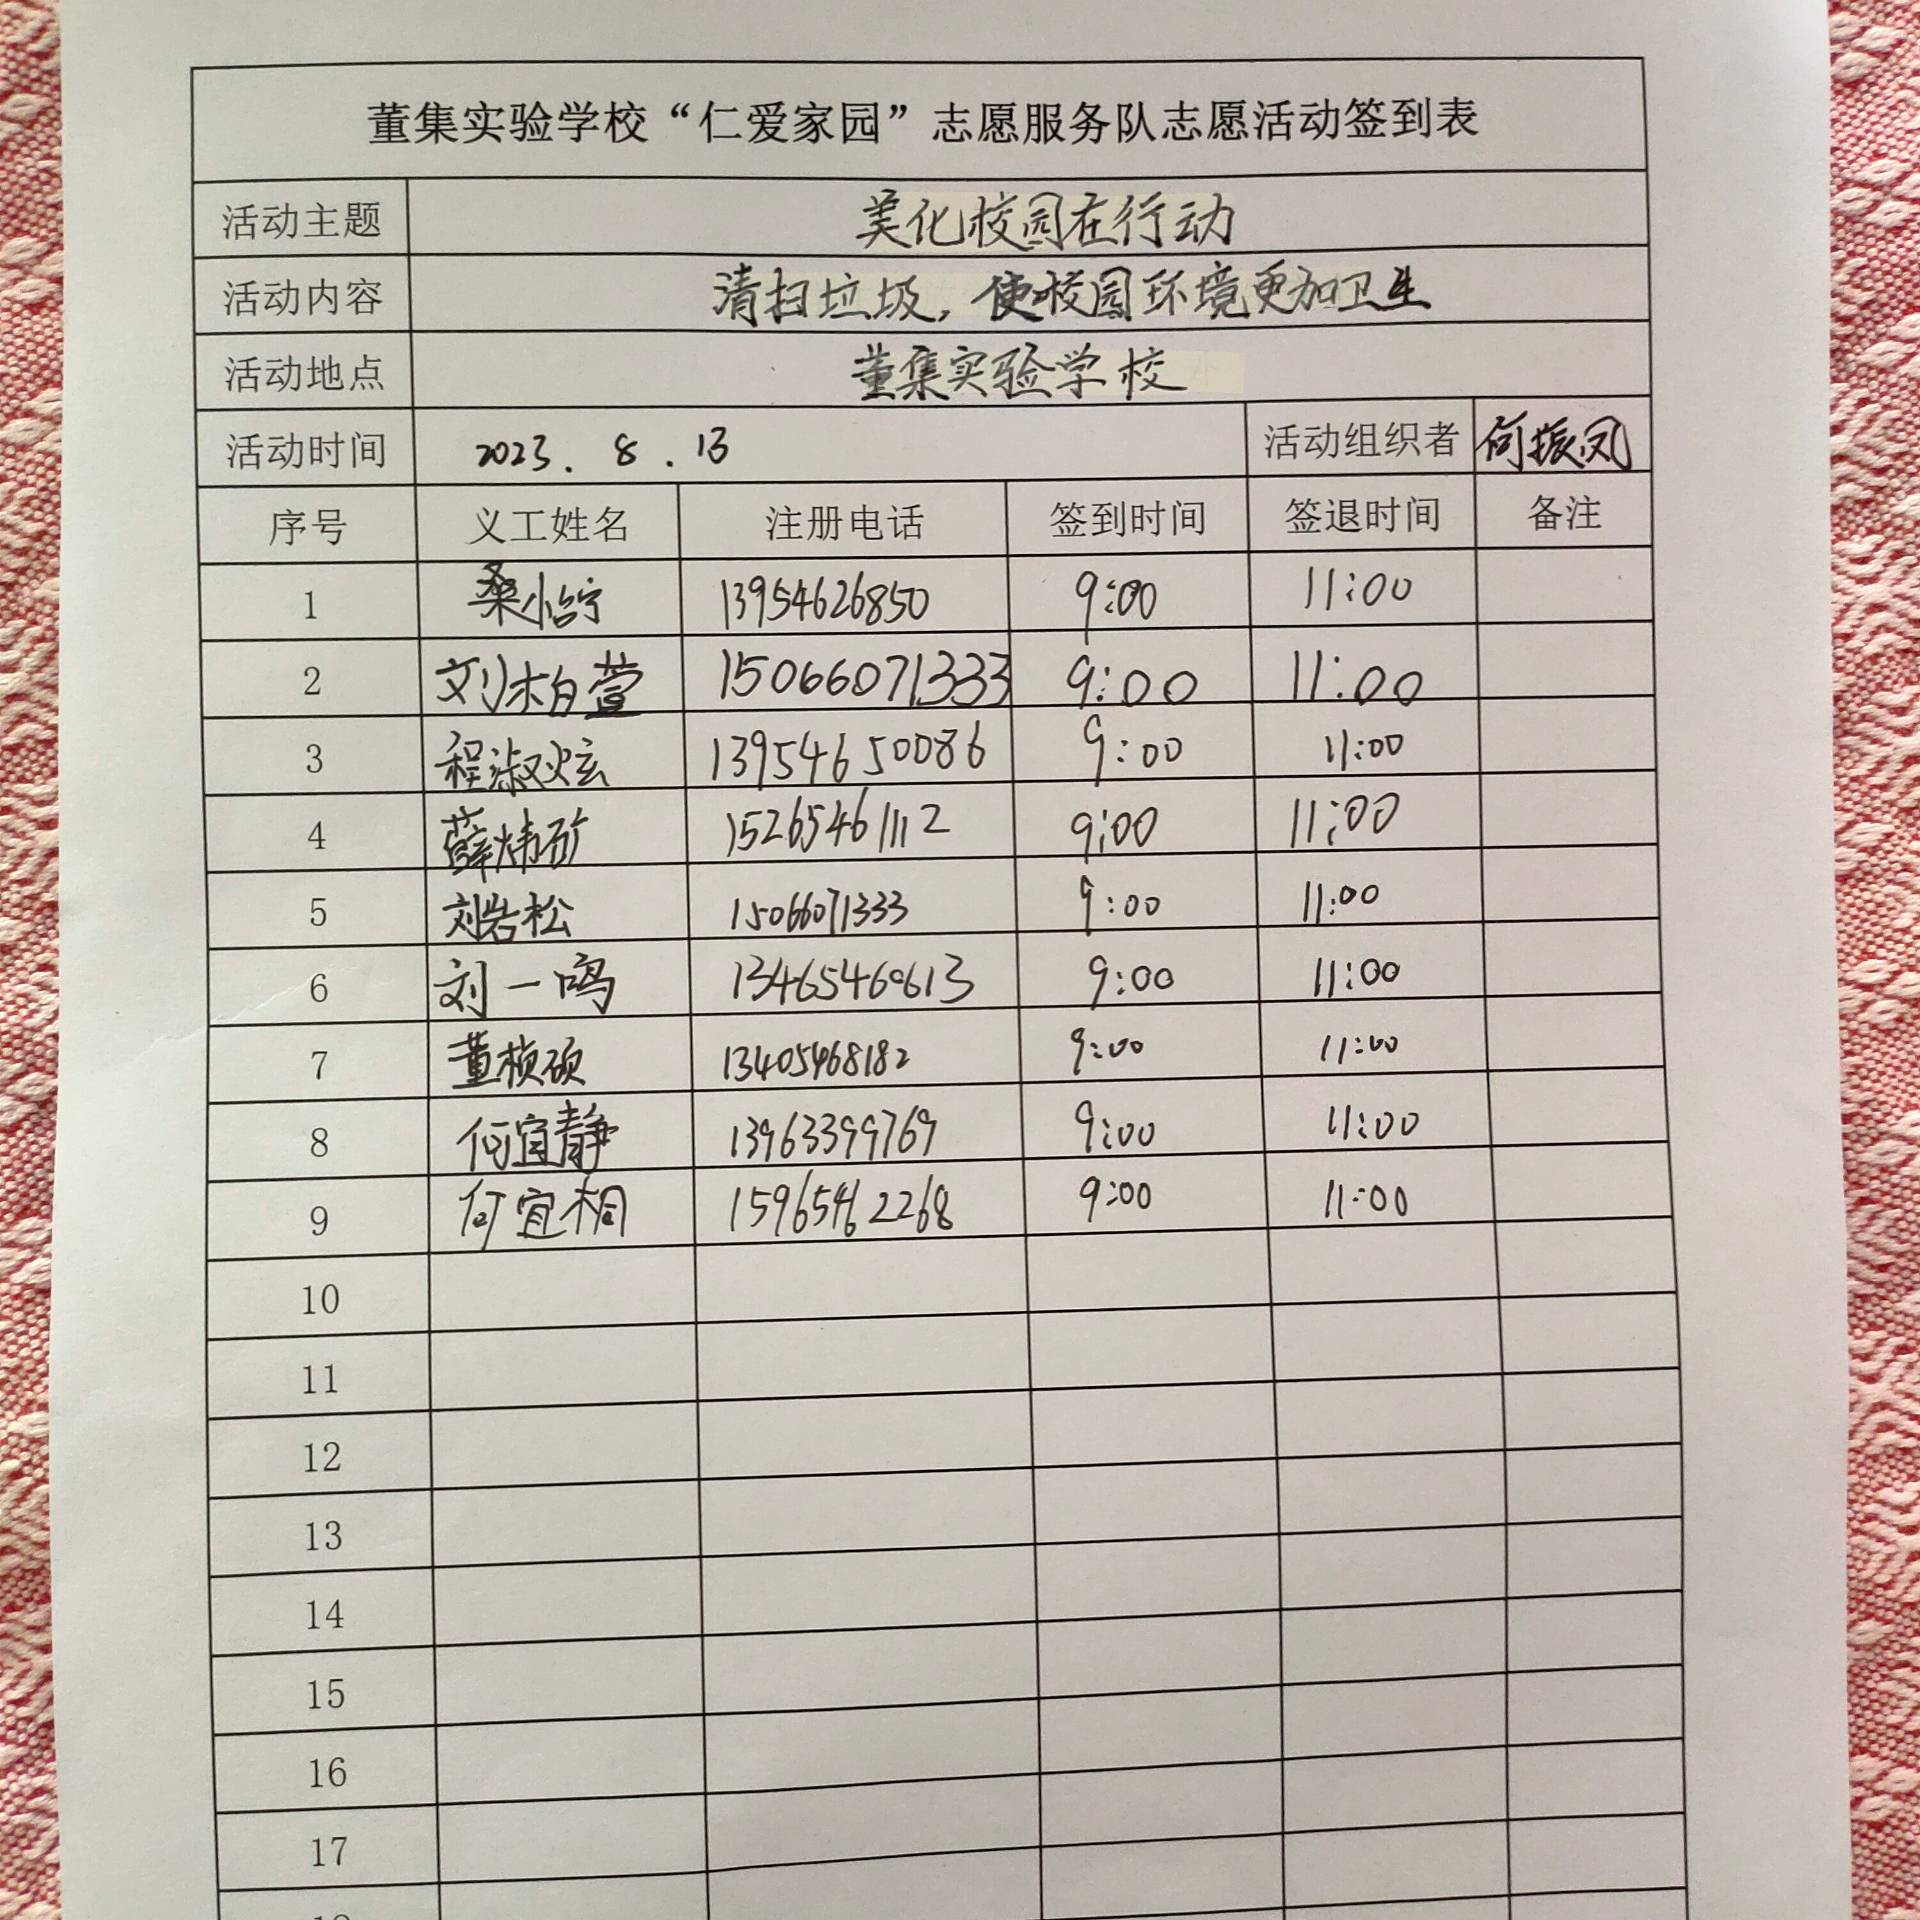 董集实验学校“仁爱家园”志愿服务队志愿活动签到表
活动主题 美化校园在行动
活动内容 清扫垃圾，使校园环境更加卫生
活动地点 董集实验学校
活动时间 2023.8.13 活动组织者 何振凤
序号 义工姓名 注册电话 签到时间 签退时间 备注
1 桑小怡宁 13954626850 9:00 11:00
2 刘柏萱 15066071333 9:00 11:00
3 程淑炫 13954650086 9:00 11:00
4 薛炜矿 15265461112 9:00 11:00
5 刘岩松 15066071333 9:00 11:00
6 刘一鸣 13465460613 9:00 11:00
7 董桢硕 13405468182 9:00 11:00
8 何宜静 13963399769 9:00 11:00
9 何宜桐 15965462268 9:00 11:00
10
11
12
13
14
15
16
17